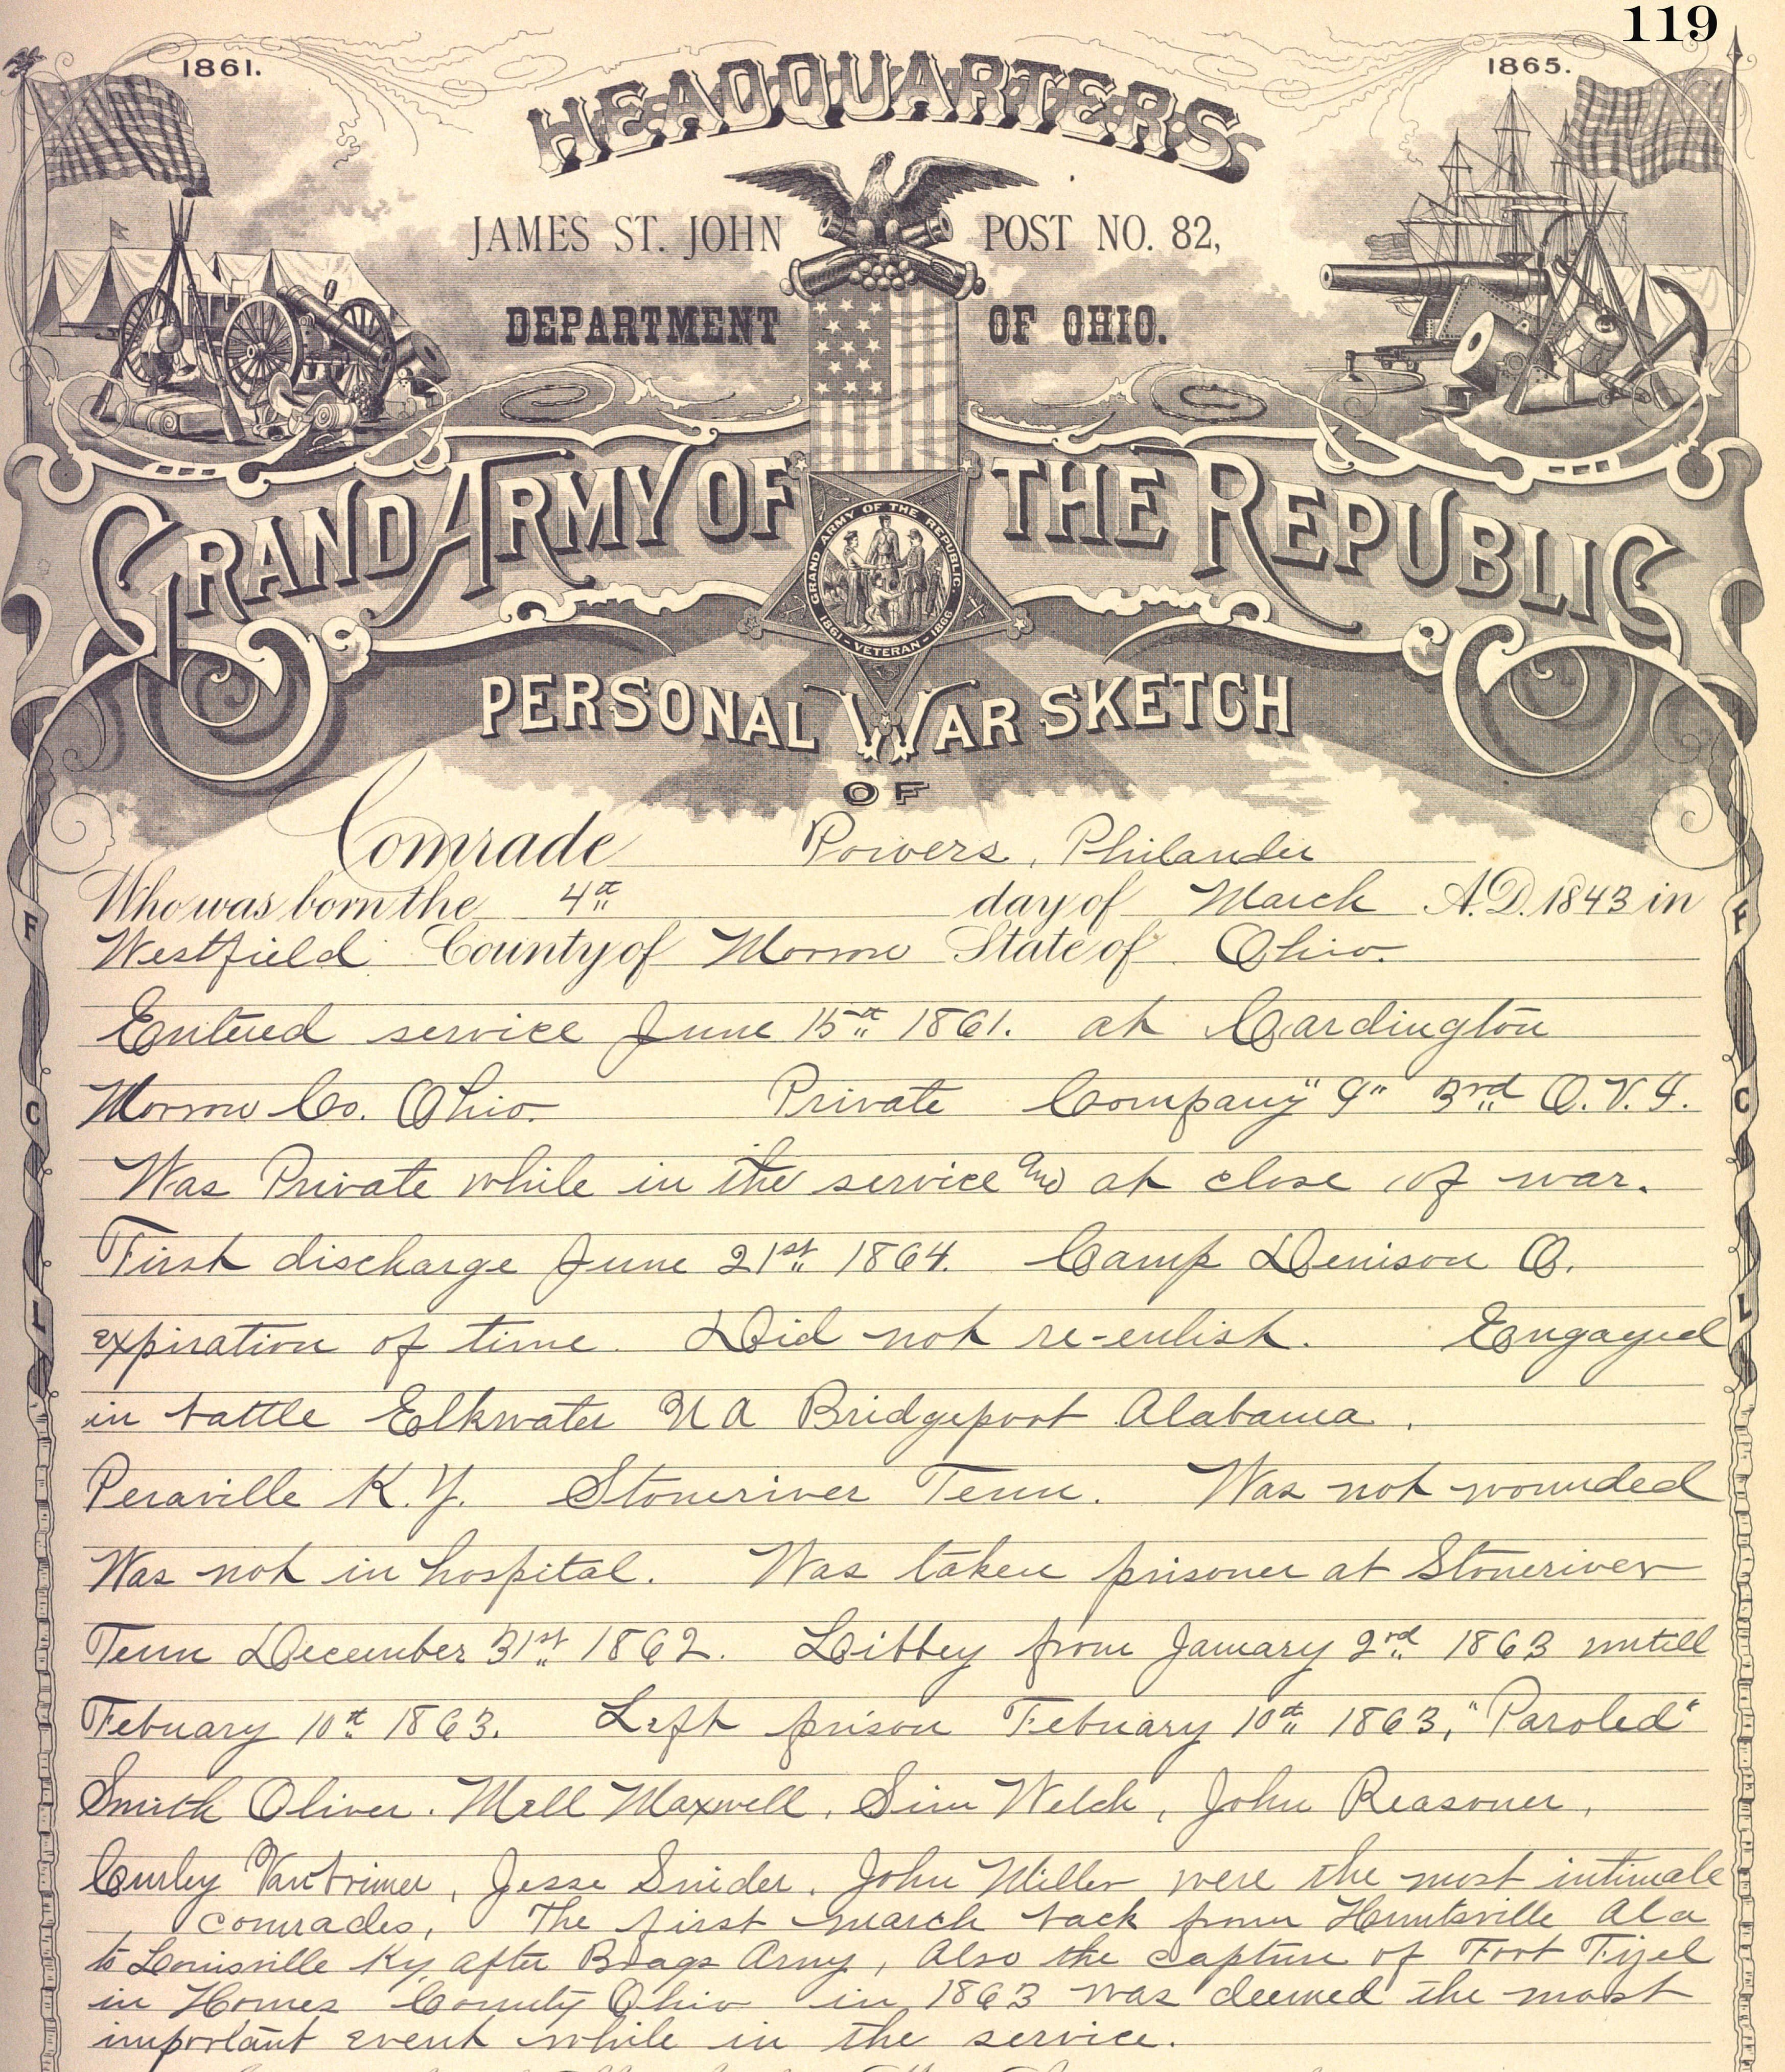 119
1861.
1865.
HEADQUARTERS
JAMES ST. JOHN POST NO. 82,
DEPARTMENT OF OHIO.
GRAND ARMY OF THE REPUBLIC
GRAND ARMY OF THE REPUBLIC
1861 - VETERAN - 1866
PERSONAL WAR SKETCH
OF
Comrade Powers, Philander
Who was born the 4th day of March A.D. 1843 in
Westfield County of Morrow State of Ohio.
Entered service June 15th 1861. at Cardington
Morrow Co. Ohio. Private Company "I" 3rd O.V.I.
Was Private while in the service and at close of war.
First discharge June 21st 1864. Camp Denison O.
expiration of time. Did not re-enlist. Engaged
in battle Elkwater Bridgeport Alabama.
Peraville K.Y. Stoneriver Tenn. Was not wounded
Was not in hospital. Was taken prisoner at Stoneriver
Tenn December 31st 1862. Libbey from January 2rd 1863 untill
Febuary 10th 1863. Left prison Febuary 10th 1863, "Paroled"
Smith Oliver. Mell Maxwell, Sim Welch, John Reasoner,
Curley Vantrimer, Jesse Snider, John Miller were the most intimale
comrades, The first march back from Huntsville Ala
to Louisville Ky after Brags Army, Also the capture of Foot Fizel
in Homes County Ohio in 1863 was deemed the most
important event while in the service.
F
C
L
F
C
L